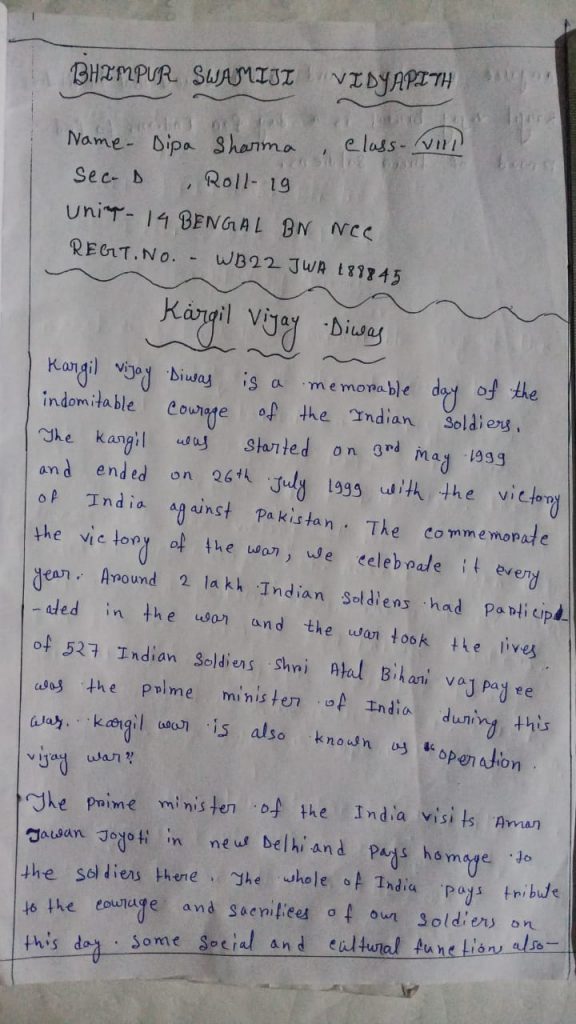 BHIMPUR SWAMIJI VIDYAPITH
Name- Dipa Sharma, Class- VIII
Sec- D, Roll- 19
Unit- 14 BENGAL BN NCC
REGT. NO. - WB22 JWA 188845
Kargil Vijay Diwas
Kargil Vijay Diwas is a memorable day of the
indomitable courage of the Indian Soldiers.
The Kargil was started on 3rd may 1999
and ended on 26th July 1999 with the victory
of India against Pakistan. The commemorate
the victory of the war, we celebrate it every
year. Around 2 lakh Indian Soldiers had particip
-ated in the war and the war took the lives
of 527 Indian Soldiers Shri Atal Bihari vajpayee
was the prime minister of India during this
war. Kargil war is also known as "operation
vijay war"
The prime minister of the India visits Amar
Jawan Joyoti in new Delhi and pays homage to
the soldiers there. The whole of India pays tribute
to the courage and sacrifices of our soldiers on
this day. Some social and cultural functions also-